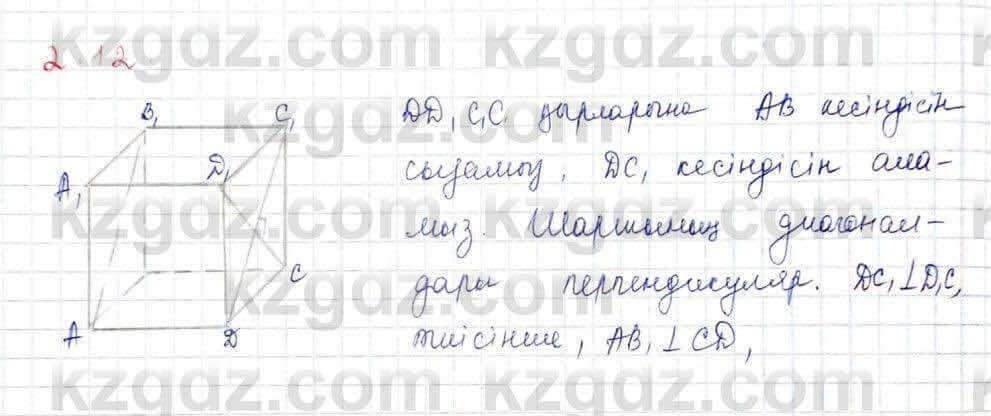 2.12
B₁ C₁
A₁ D₁
C
A D
DD₁C₁C қырларына AB кесіндісін
сызамыз, DC₁ кесіндісін ала-
мыз. Шаршының диагонал-
дары перпендикуляр. DC₁⊥D₁C,
тиісінше, AB₁⊥CD₁
kzgdz.com kzgdz.com
kzgdz.com
kzgdz.com kzgdz.com
kzgdz.com
kzgdz.com kzgdz.com